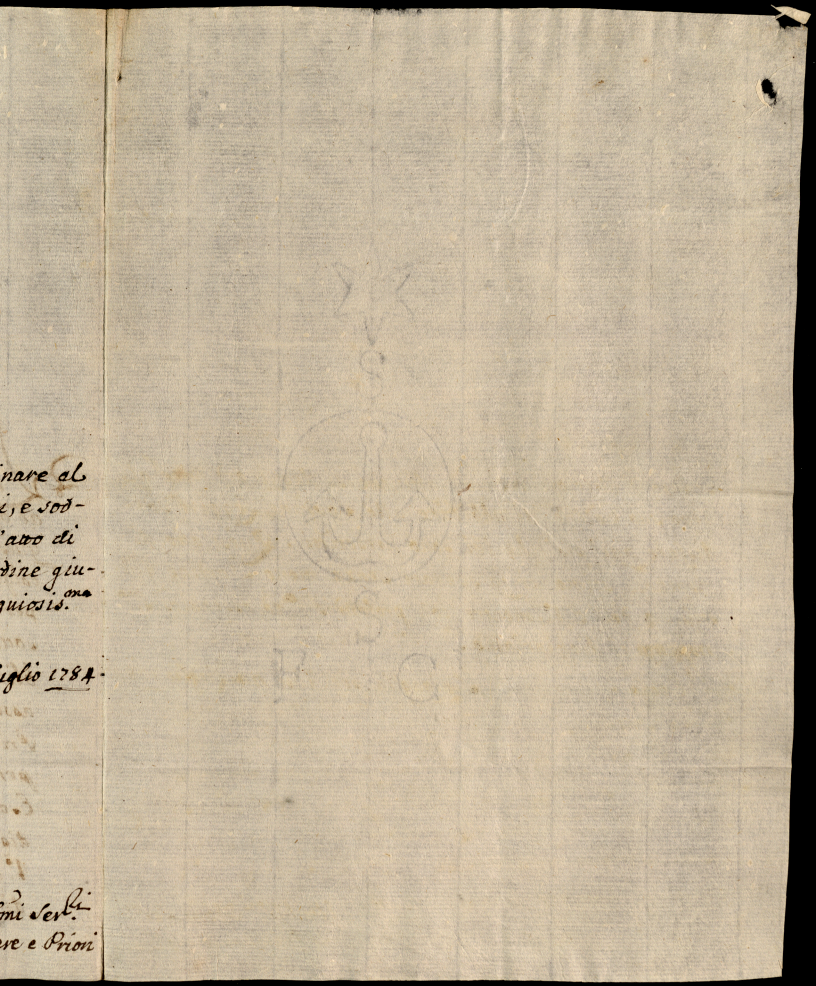 nare al
i, e sod-
atto di
dine giu-
quiosis.ma
iglio 1784.
mi Ser.ri
re e Priori